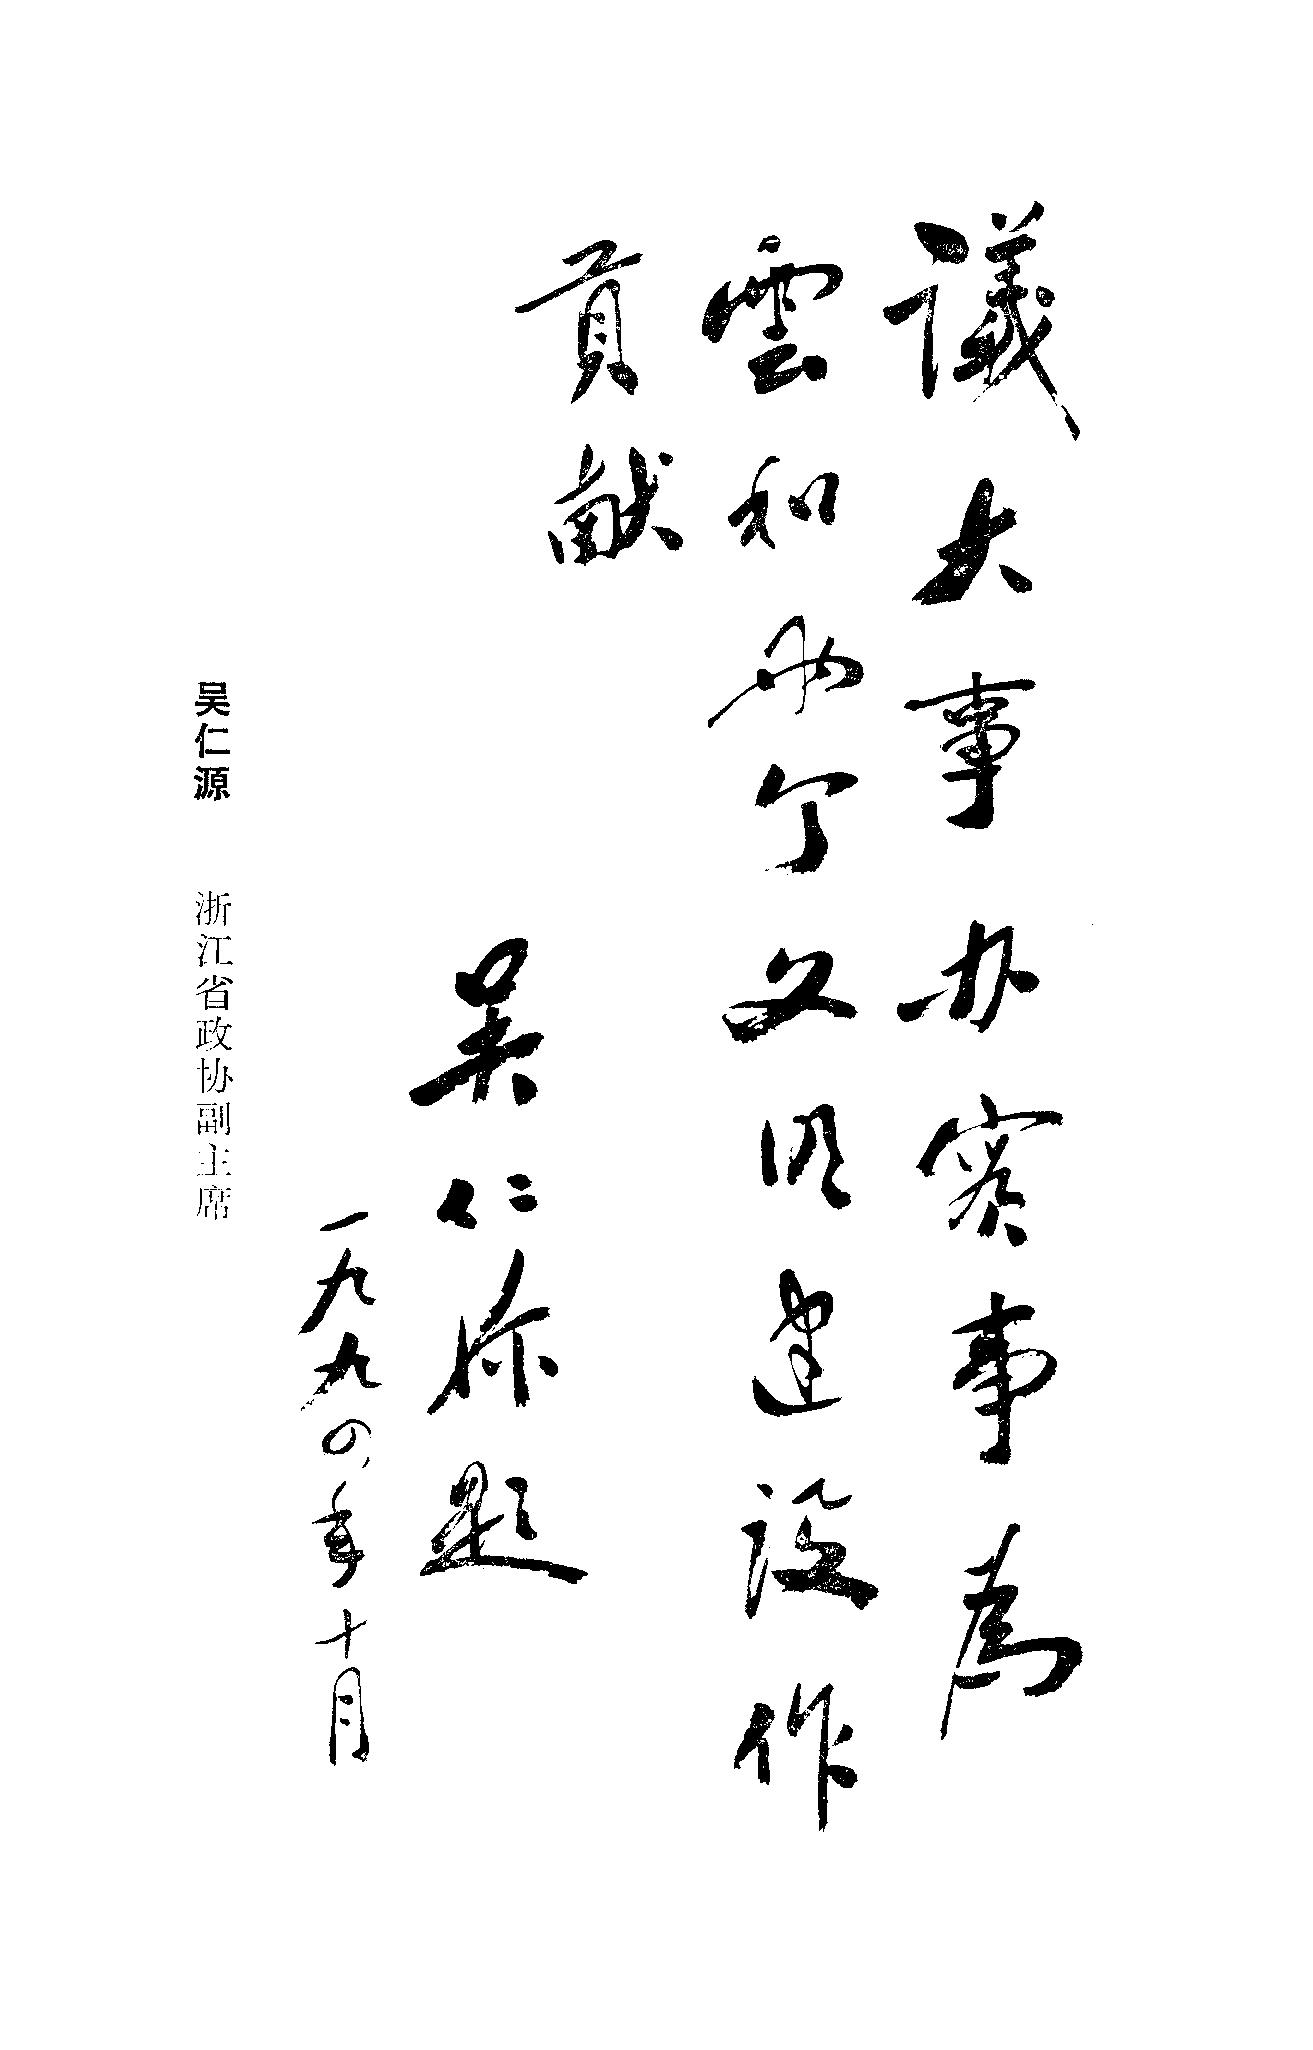 議大事办实事為
雲和两个文明建设作
貢献
吴仁源题
一九九四年十月
吴仁源 浙江省政协副主席